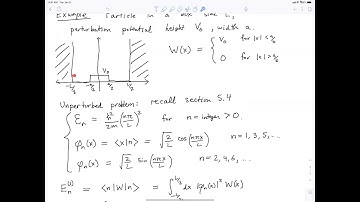 Example: Particle in a box size L,
perturbation potential height V₀, width a.
W(x) = { V₀ for |x| ≤ a/2
0 for |x| > a/2
V₀
-L/2 -a/2 a/2 L/2
Unperturbed problem: recall section 5.4
{ Eₙ = ħ²/2m (nπ/L)² for n = integer > 0.
φₙ(x) = <x|n> = √(2/L) cos(nπx/L) n = 1, 3, 5, ...
φₙ(x) = √(2/L) sin(nπx/L) n = 2, 4, 6, ...
Eₙ⁽¹⁾ = <n|W|n> = ∫_{-L/2}^{L/2} dx |φₙ(x)|² W(x)